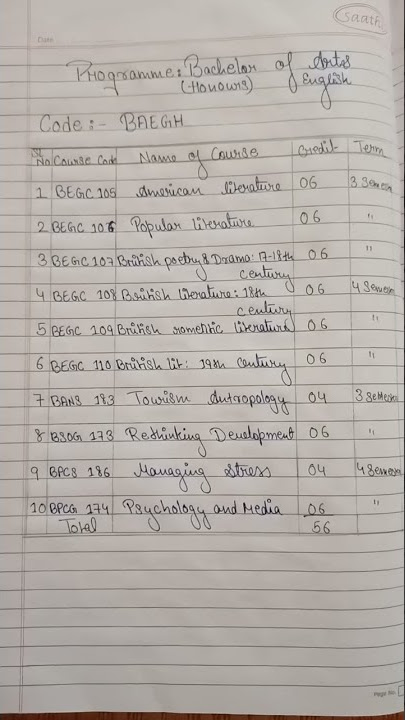 saath
Date
Programme: Bachelor of Arts
(Honours) English
Code:- BAEGH
Sl No Course Code Name of Course Credit Term
1 BEGC 105 American literature 06 3 Semest
2 BEGC 106 Popular literature 06 "
3 BEGC 107 British poetry & Drama: 17-18th century 06 "
4 BEGC 108 British literature: 18th century 06 4 Semest
5 BEGC 109 British romentic literature 06 "
6 BEGC 110 British lit: 19th century 06 "
7 BANS 183 Tourism Antropology 04 3 Semest
8 BSOG 173 Rethinking Development 06 "
9 BPCS 186 Managing stress 04 4 Semest
10 BPCG 174 Psychology and Media 06 "
Total 56
Page No.